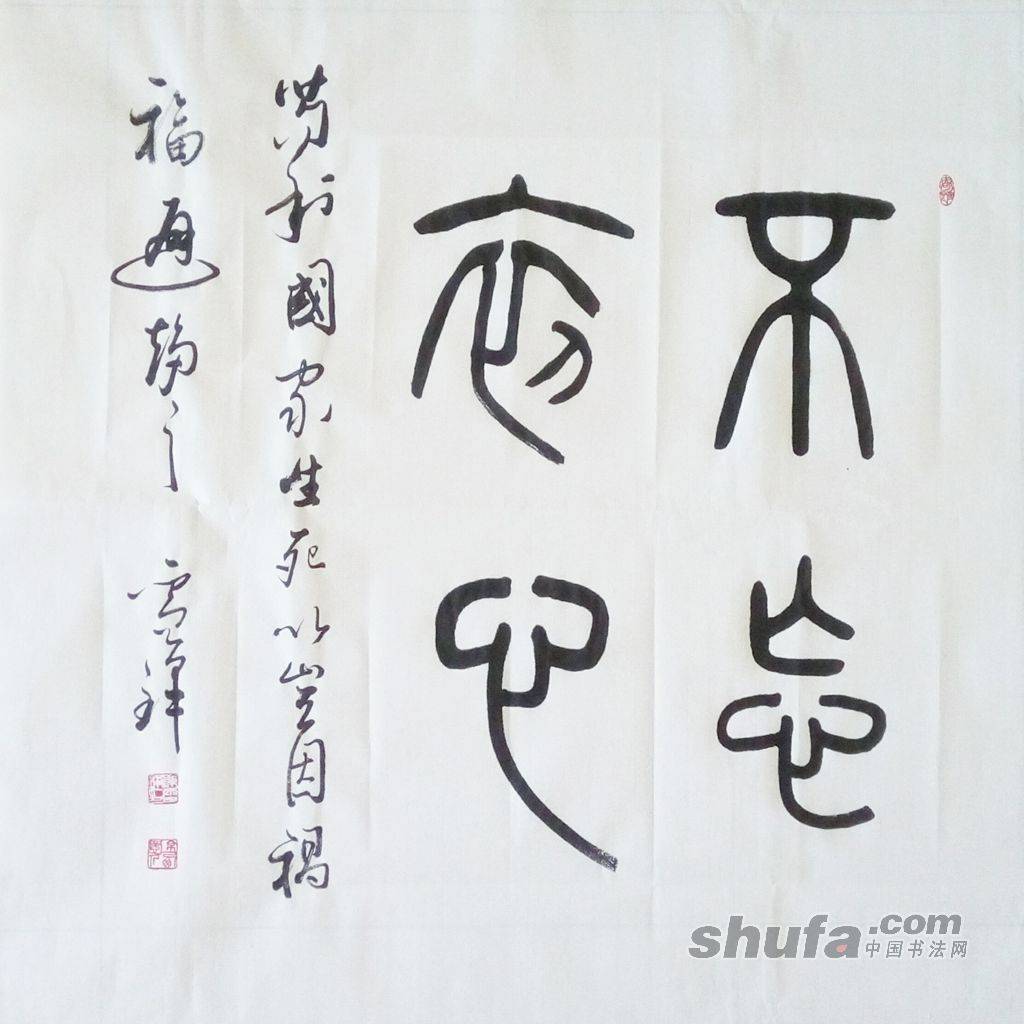 不忘
初心
苟利國家生死以豈因禍
福避趨之 雲鋒
shufa.com
中国书法网